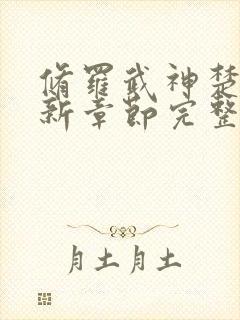 脩羅武神楚
新章節完整
月土月土